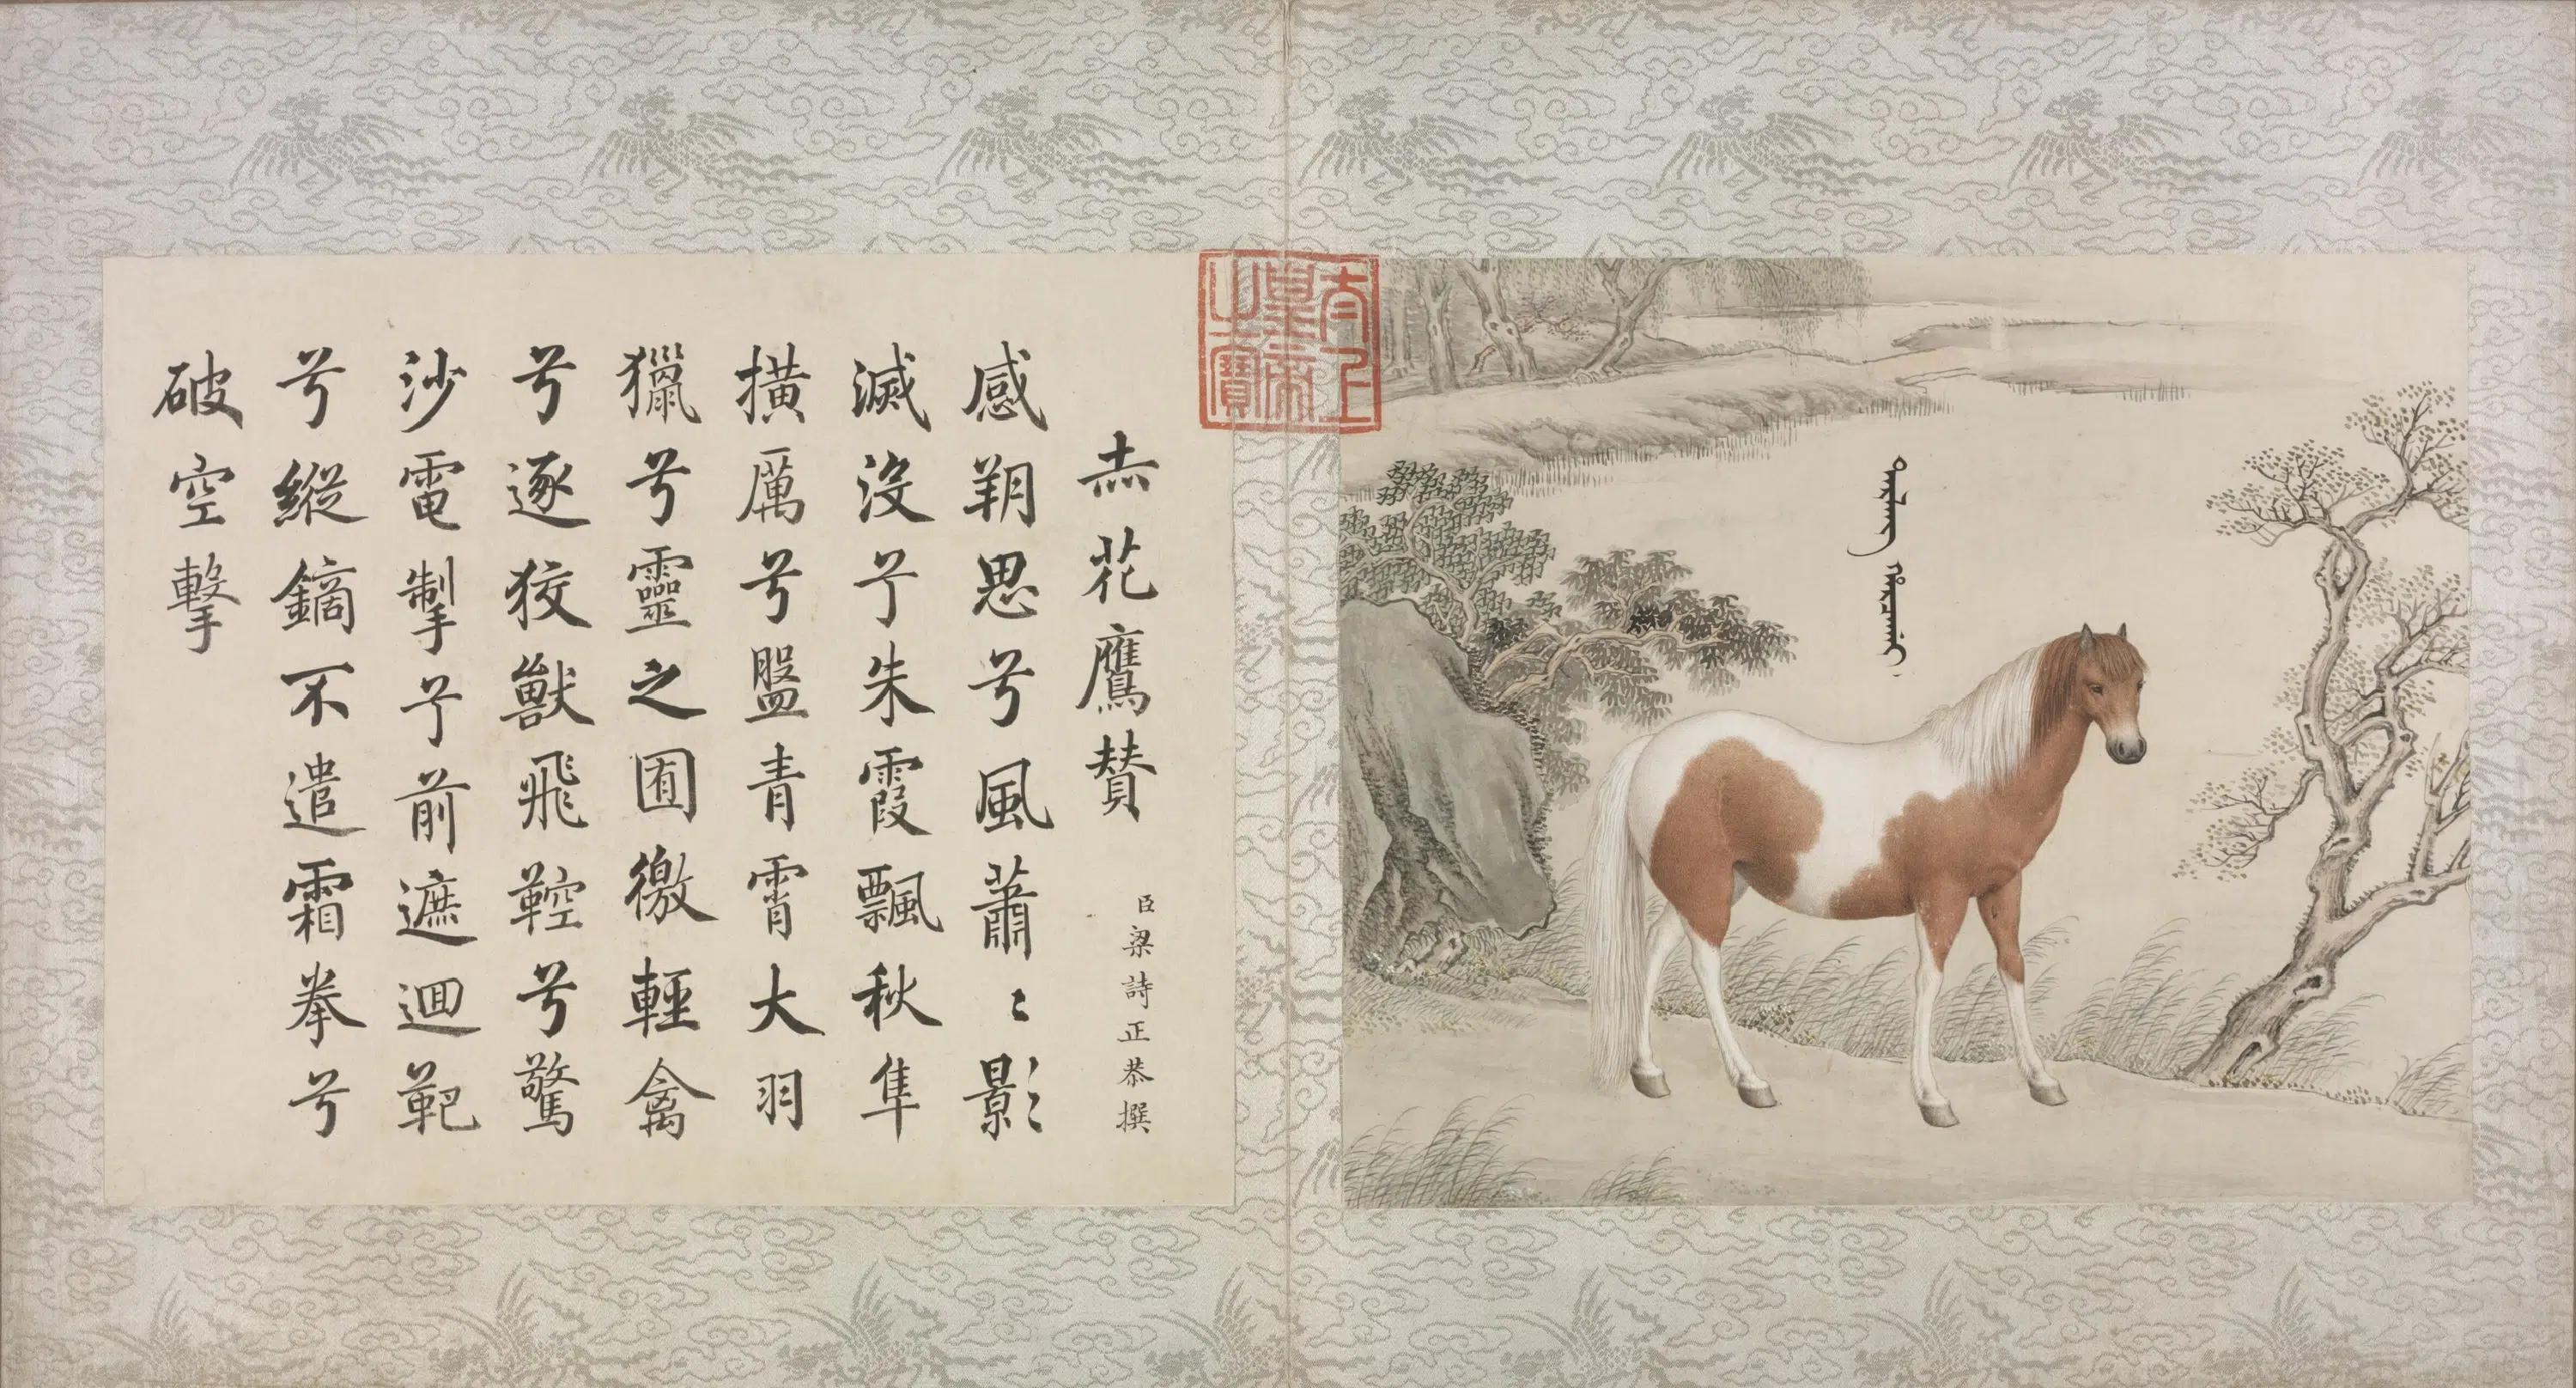 太上皇帝之寶
赤花鷹賛
臣梁詩正恭撰
感朔思兮風蕭〻影
滅没兮朱霞飄秋隼
撗厲兮盤青霄大羽
獵兮靈之囿徼輕禽
兮逐狡獸飛鞚兮驚
沙電掣兮前遮迴靶
兮縱鏑不遣霜拳兮
破空擊